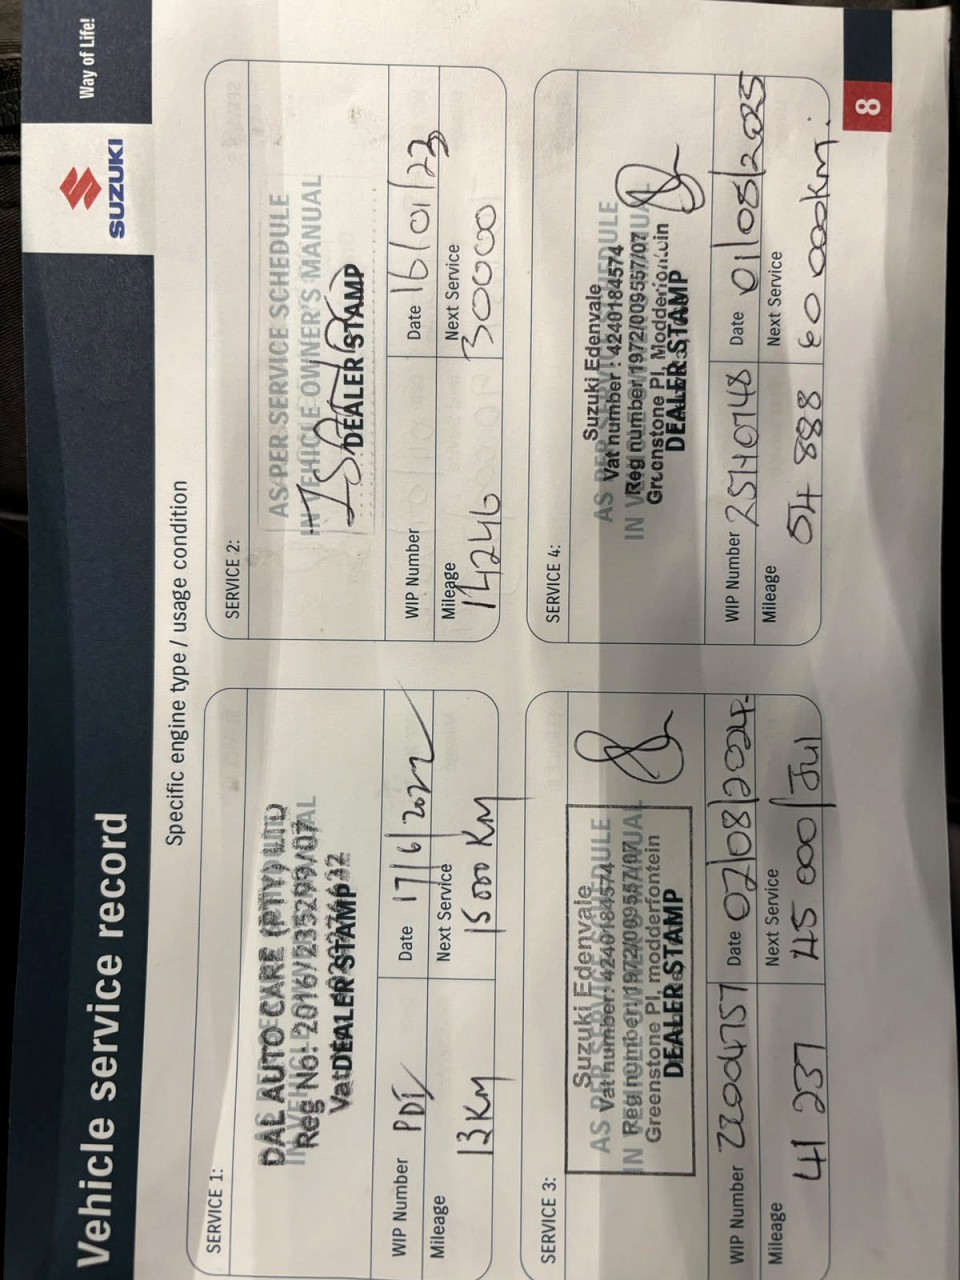 Vehicle service record
SUZUKI
Way of Life!
Specific engine type / usage condition
SERVICE 1:
DAL AUTO CARE (PTY) LTD
Reg No: 2016/235299/07
DEALER STAMP
WIP Number PDI
Date 17/6/2022
Mileage
13 Km
Next Service
15 000 Km
SERVICE 2:
AS PER SERVICE SCHEDULE
IN VEHICLE OWNER'S MANUAL
DEALER STAMP
WIP Number
Date 16/01/23
Mileage
14246
Next Service
30000
SERVICE 3:
AS PER SERVICE SCHEDULE
Suzuki Edenvale
Vat number: 4240184574
Reg number: 1972/009557/07
Greenstone Pl, modderfontein
DEALER STAMP
WIP Number
Date 02/08/2024
Mileage
41 237
Next Service
45 000 / Jul
SERVICE 4:
AS PER SERVICE SCHEDULE
Suzuki Edenvale
Vat number : 4240184574
Reg number 1972/009557/07
Greenstone Pl, Modderfontein
DEALER STAMP
WIP Number
Date 01/08/2025
Mileage
54 888
Next Service
60 000km.
8